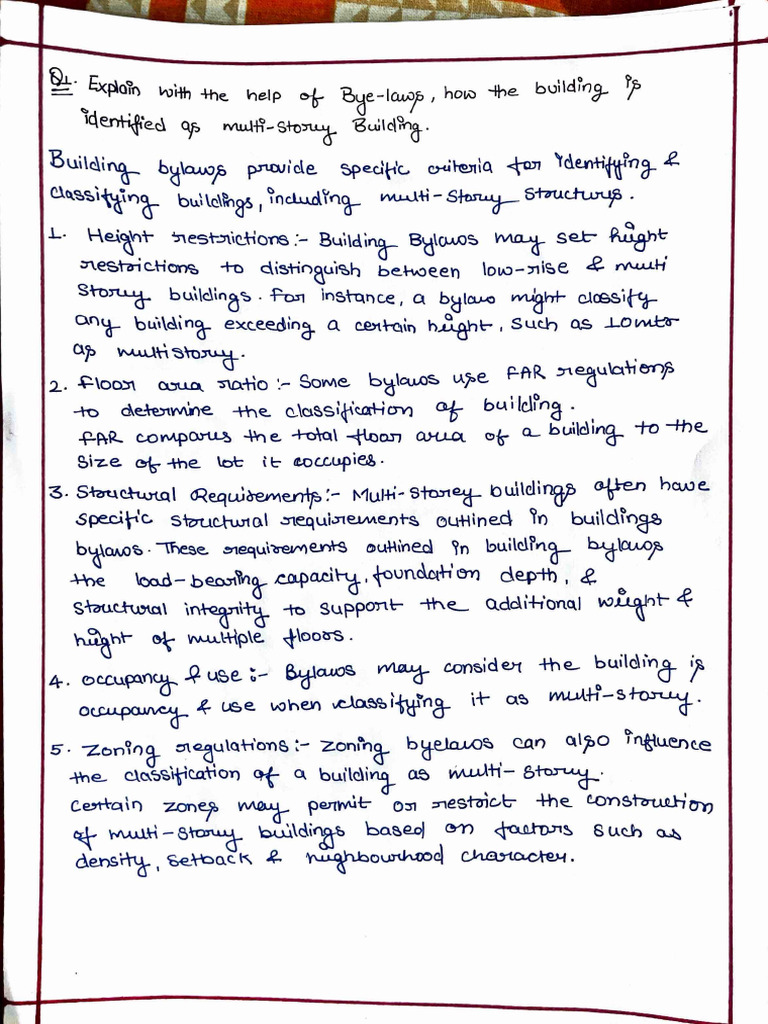 Q1. Explain with the help of Bye-laws, how the building is
identified as multi-storey Building.
Building bylaws provide specific criteria for identifying &
classifying buildings, including multi-story structures.
1. Height restrictions:- Building Bylaws may set height
restrictions to distinguish between low-rise & multi
storey buildings. For instance, a bylaw might classify
any building exceeding a certain height, such as 10mtr
as multistorey.
2. Floor area ratio:- Some bylaws use FAR regulations
to determine the classification of building.
FAR compares the total floor area of a building to the
size of the lot it occupies.
3. Structural Requirements:- Multi-storey buildings often have
specific structural requirements outlined in buildings
bylaws. These requirements outlined in building bylaws
the load-bearing capacity, foundation depth, &
structural integrity to support the additional weight &
height of multiple floors.
4. Occupancy & use:- Bylaws may consider the building is
occupancy & use when classifying it as multi-storey.
5. Zoning regulations:- Zoning byelaws can also influence
the classification of a building as multi-story.
Certain zones may permit or restrict the construction
of multi-story buildings based on factors such as
density, setback & neighbourhood character.